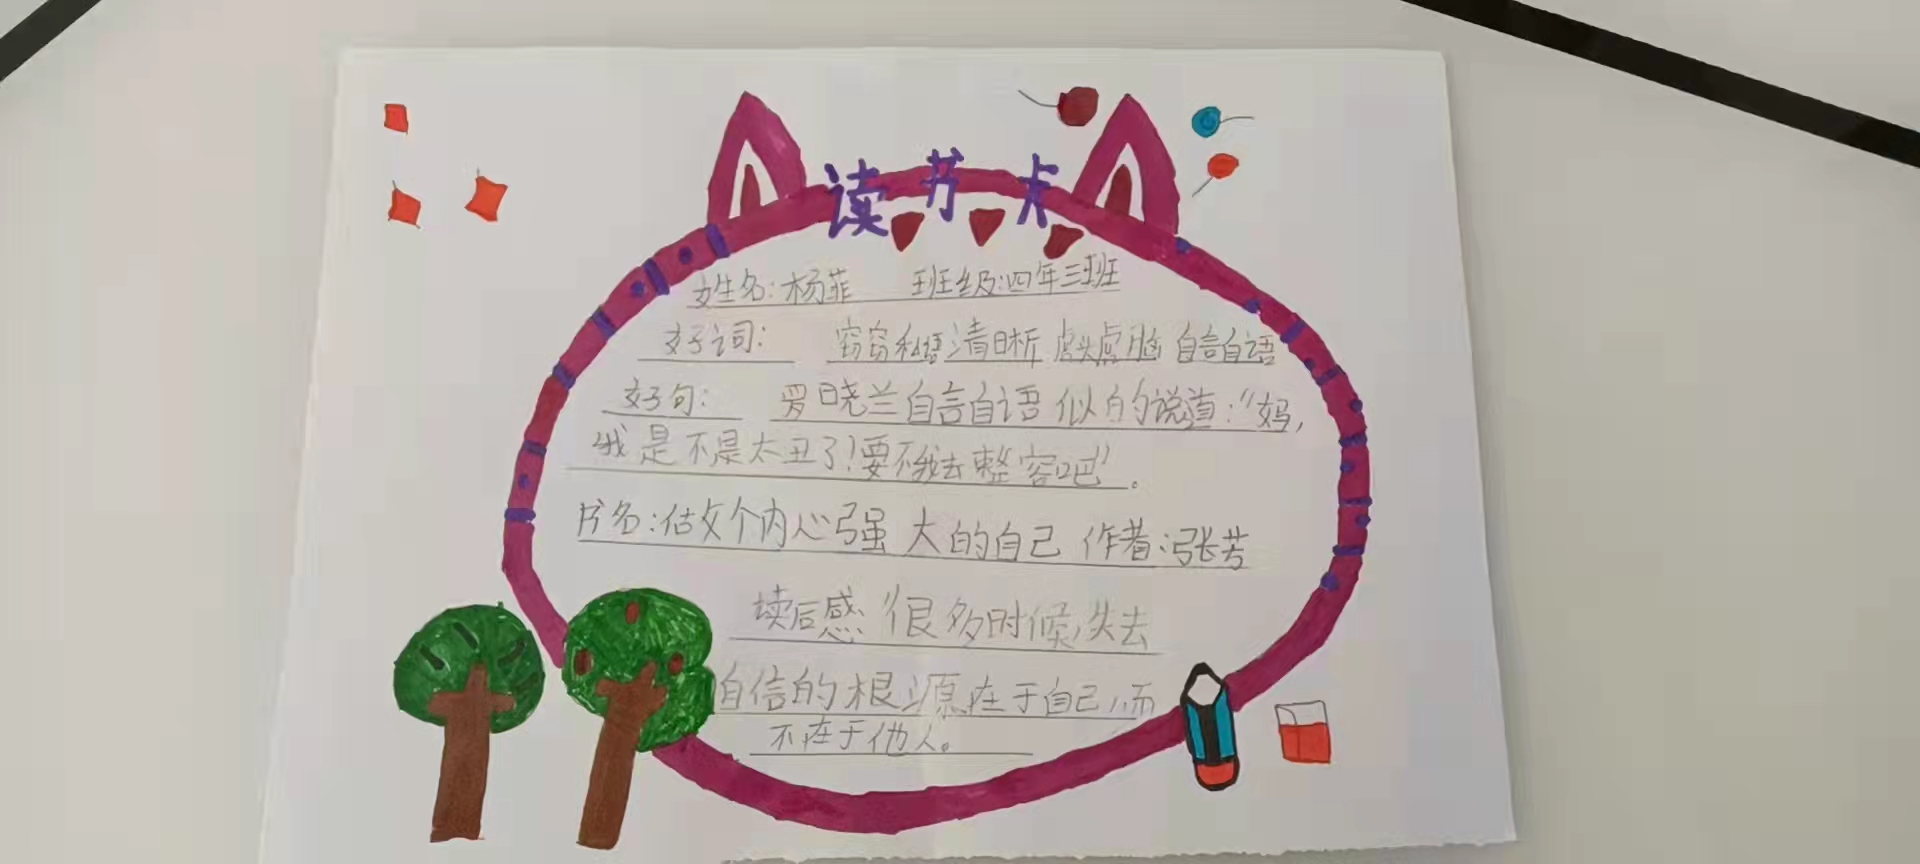 读书卡
姓名:杨菲 班级:四年三班
好词: 窃窃私语 清晰 虎头虎脑 自言自语
好句: 罗晓兰自言自语似的说道:“妈,
我是不是太丑了!要不我去整容吧”。
书名:做个内心强大的自己 作者:张芳
读后感 “很多时候,失去
自信的根源在于自己,而
不在于他人。